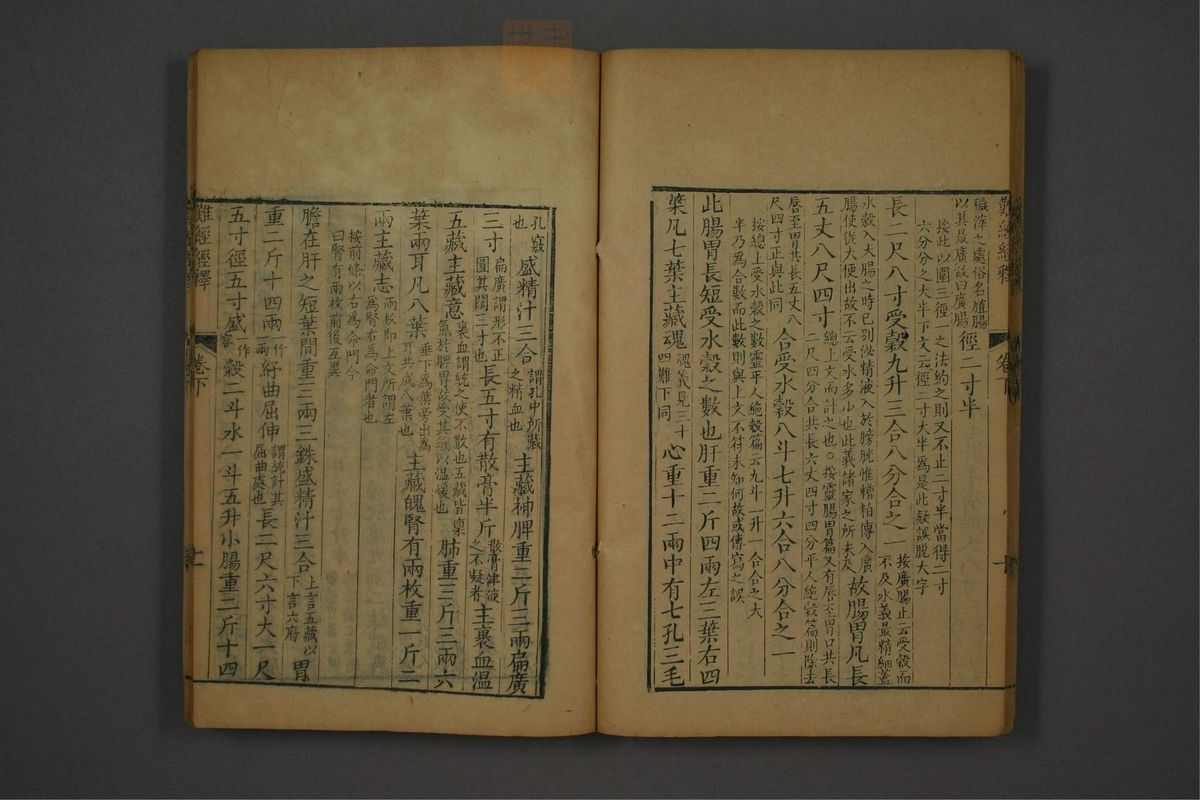 難經經釋
卷下
臟滓之處俗名膻腸
以其最廣故曰廣腸
徑二寸半
按此以圍三徑一之法約之則又不止二寸半當得二寸
六分分之大半下文云徑二寸大半爲是此疑誤脫大字
長二尺八寸受穀九升三合八分合之一
按廣腸止云受穀而
不及水義最精細蓋
水穀入大腸之時已別泌精液入於膀胱惟糟粕傳入廣
腸使從大便出故不云受水多少也此義諸家之所未及
故腸胃凡長
五丈八尺四寸
總上文而計之也○按靈腸胃篇又有唇至胃口共長
二尺四分合共長六丈四寸四分平人絶穀篇則除去
唇至胃共長五丈八
尺四寸正與此同
合受水穀八斗七升六合八分合之一
按總上受水穀之數靈平人絶穀篇云九斗一升一合合之大
半乃爲合數而此數則與上文不符未知何故或傳寫之誤
此腸胃長短受水穀之數也肝重二斤四兩左三葉右四
葉凡七葉主藏魂
魂義見三十
四難下同
心重十二兩中有七孔三毛
孔竅
也
盛精汁三合
謂孔中所藏
之精血也
主藏神脾重二斤三兩扁廣
三寸
扁廣謂形不正
圓其闊三寸也
長五寸有散膏半斤
散膏津液
之不凝者
主裹血溫
五藏主藏意
裹血謂統之使不散也五藏皆稟
氣於脾胃故受其氣以溫煖也
肺重三斤三兩六
葉兩耳凡八葉
垂下爲葉旁出爲
耳共成八葉也
主藏魄腎有兩枚重一斤二
兩主藏志
兩枚即上文所謂左
爲腎右爲命門者也
按前條以右爲命門今
曰腎有兩枚前後互異
膽在肝之短葉間重三兩三銖盛精汁三合
上言五藏以
下言六府
胃
重二斤十四兩
一作
一兩
紆曲屈伸
謂統計其
屈曲處也
長二尺六寸大一尺
五寸徑五寸盛
一作
容
穀二斗水一斗五升小腸重二斤十四
難經經釋
卷下